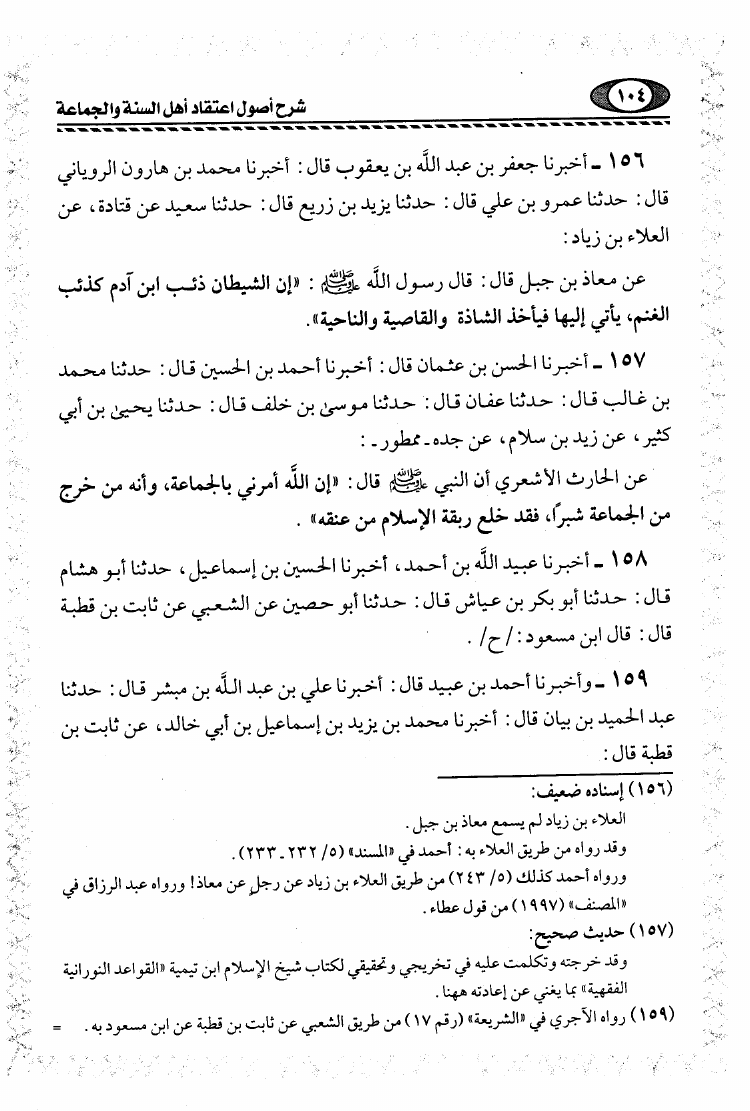 شرح أصول اعتقاد أهل السنة والجماعة
١٠٤
١٥٦ ـ أخبرنا جعفر بن عبد اللَّه بن يعقوب قال: أخبرنا محمد بن هارون الروياني
قال: حدثنا عمرو بن علي قال: حدثنا يزيد بن زريع قال: حدثنا سعيد عن قتادة، عن
العلاء بن زياد:
عن معاذ بن جبل قال: قال رسول اللَّه ﷺ: «إن الشيطان ذئب ابن آدم كذئب
الغنم، يأتي إليها فيأخذ الشاذة والقاصية والناحية».
١٥٧ ـ أخبرنا الحسن بن عثمان قال: أخبرنا أحمد بن الحسين قال: حدثنا محمد
بن غالب قال: حدثنا عفان قال: حدثنا موسىٰ بن خلف قال: حدثنا يحيىٰ بن أبي
كثير، عن زيد بن سلام، عن جده ـ ممطور ـ :
عن الحارث الأشعري أن النبي ﷺ قال: «إن اللَّه أمرني بالجماعة، وأنه من خرج
من الجماعة شبرًا، فقد خلع ربقة الإسلام من عنقه» .
١٥٨ ـ أخبرنا عبيد اللَّه بن أحمد، أخبرنا الحسين بن إسماعيل، حدثنا أبو هشام
قال: حدثنا أبو بكر بن عياش قال: حدثنا أبو حصين عن الشعبي عن ثابت بن قطبة
قال: قال ابن مسعود: /ح/ .
١٥٩ ـ وأخبرنا أحمد بن عبيد قال: أخبرنا علي بن عبد اللَّه بن مبشر قال: حدثنا
عبد الحميد بن بيان قال: أخبرنا محمد بن يزيد بن إسماعيل بن أبي خالد، عن ثابت بن
قطبة قال:
(١٥٦) إسناده ضعيف:
العلاء بن زياد لم يسمع معاذ بن جبل.
وقد رواه من طريق العلاء به: أحمد في «المسند» (٥/ ٢٣٢ ـ ٢٣٣).
ورواه أحمد كذلك (٥/ ٢٤٣) من طريق العلاء بن زياد عن رجلٍ عن معاذ! ورواه عبد الرزاق في
«المصنف» (١٩٩٧) من قول عطاء.
(١٥٧) حديث صحيح:
وقد خرجته وتكلمت عليه في تخريجي وتحقيقي لكتاب شيخ الإسلام ابن تيمية «القواعد النورانية
الفقهية» بما يغني عن إعادته ههنا.
(١٥٩) رواه الآجري في «الشريعة» (رقم ١٧) من طريق الشعبي عن ثابت بن قطبة عن ابن مسعود به. =